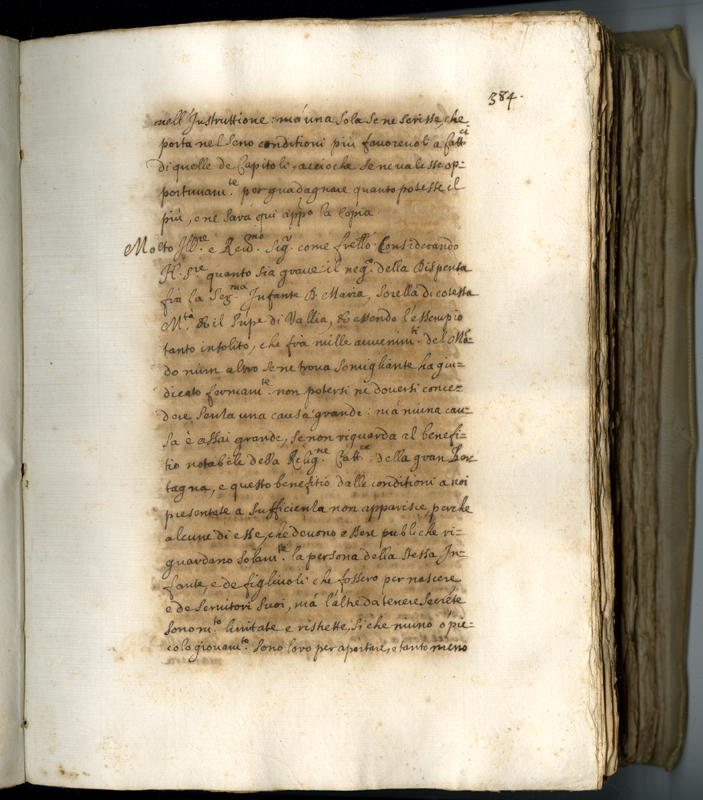 384.
nell'Instruttione: mà una sola se ne scrisse, che
porta nel seno conditioni più favorevoli a Catt.ci
di quelle de Capitoli, acciochè se ne valesse op-
portunam.te per guadagnare quanto potesse il
più, e ne sarà qui appo la copia.
Molto Ill.re e Reud.mo Sig.r come frello. Considerando
N. S.re quanto sia grave il neg.o della Dispensa
frà la Ser.ma Infante D. Maria, sorella di cotesta
M.tà, & il Prpe di Vallia, & essendo l'essempio
tanto insolito, che frà mille avvenim.ti del Mõ-
do niun altro se ne trova somigliante hà giu-
dicato fermam.te non potersi nè doversi conce-
dere senza una causa grande: mà niuna cau-
sa è assai grande, se non riguarda al benefi-
tio notabile della Relig.ne Catt.ca della gran Bre
tagna, e questo benefitio dalle conditioni a noi
presentate a sufficienza non apparisce, perche
alcune di esse, che devono essere publiche ri-
guardano solam.te la persona della stessa In-
fante, e de figlivoli che fossero per nascere
e de servitori suoi, mà l'altre da tenere secrete
sono m.to limitate e ristrette, si che niuno o pic-
colo giovam.to sono loro per aportare, e tanto meno